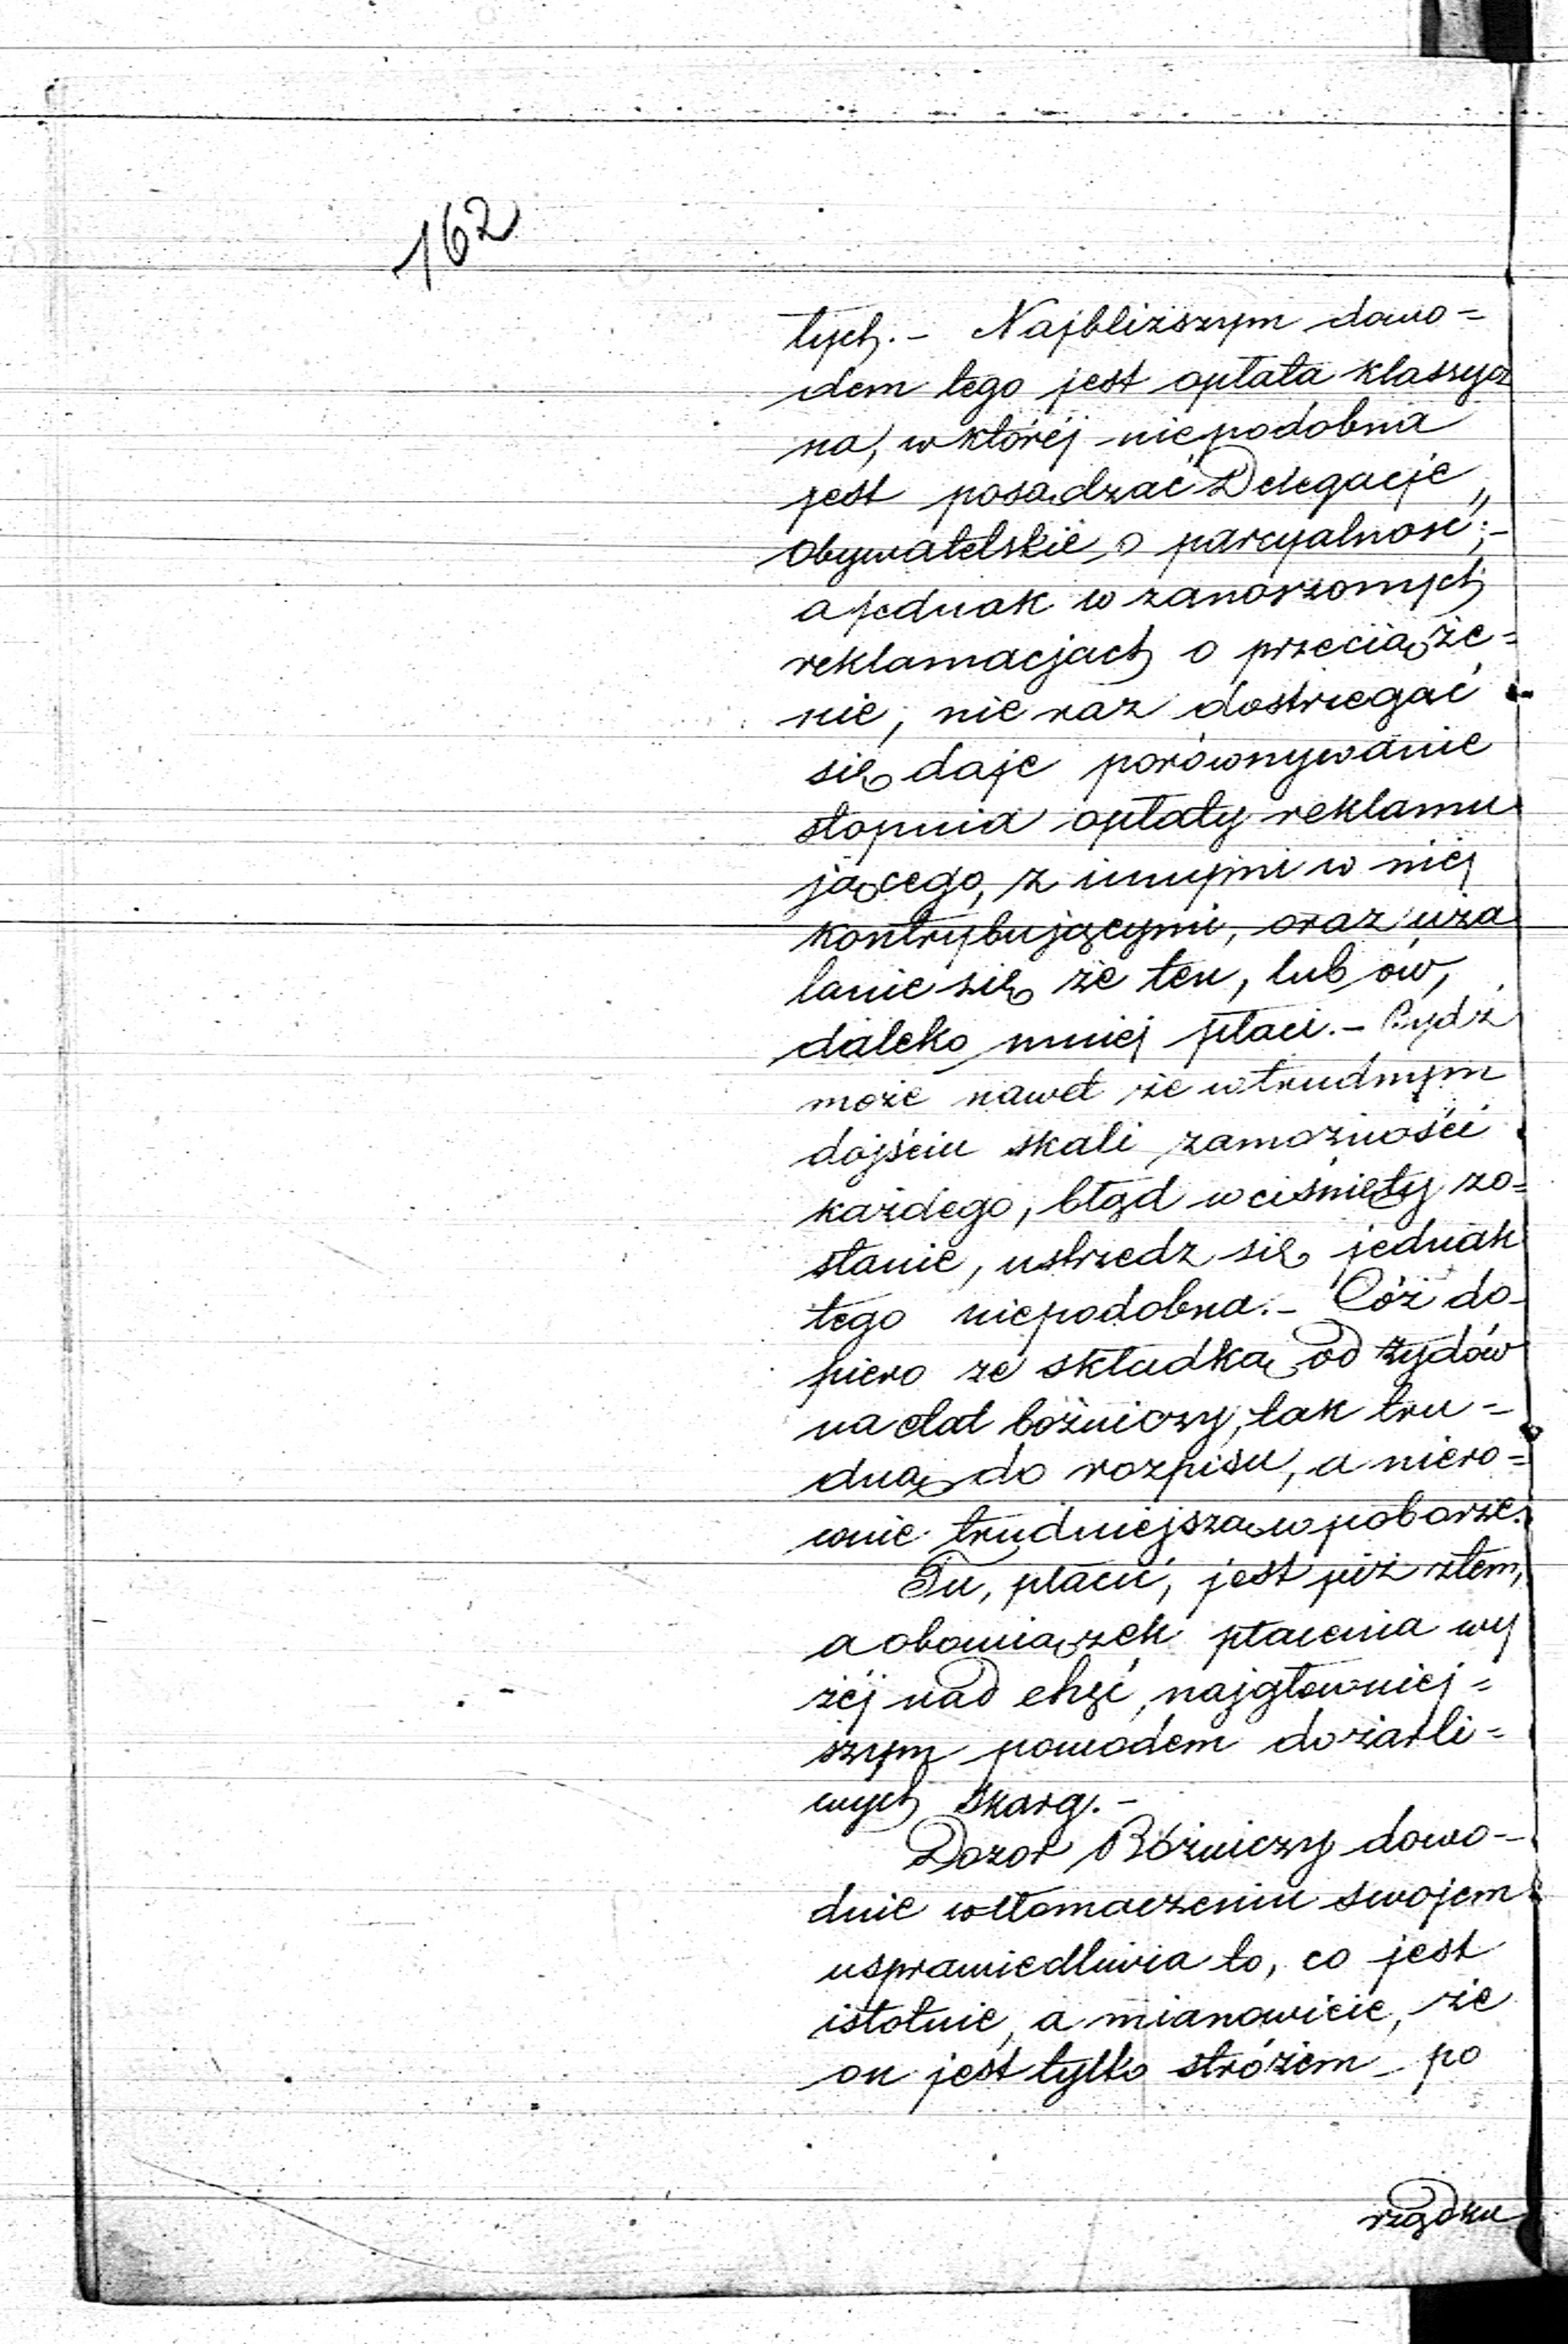 162
tych. – Najbliższym dowo=
dem tego jest opłata klassycz
na, w któréj niepodobna
jest posądzać Delegacje
Obywatelskie o parcyalność; –
a jednak w zanoszonych
reklamacjach o przeciąże=
nie, nie raz dostrzegać
się daje porównywanie
stopnia opłaty reklamu
jącego, z innymi w niéj
kontrybującymi, oraz uża
lanie się że ten, lub ów,
daleko mniéj płaci. – Bydź
może nawet że w trudnym
dojściu skali zamożności
każdego, błąd wciśnięty zo=
stanie, ustrzedz się jednak
tego niepodobna. – Cóż do-
piero ze składką od żydów
na etat bóżniczy, tak tru=
dną do rozpisu, a niero=
wnie trudniejszą w poborze.
Tu, płacić, jest już złem,
a obowiązek płacenia wy
żéj nad chęć, najgłówniej=
szym powodem do żarli=
wych skarg. –
Dozór Bóżniczy dowo-
dnie w tłomaczeniu swojem
usprawiedliwia to, co jest
istotnie, a mianowicie, że
on jest tylko stróżem po
rządku